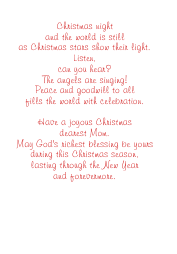 Christmas night
and the world is still
as Christmas stars show their light.
Listen,
can you hear?
The angels are singing!
Peace and goodwill to all
fills the world with celebration.

Have a joyous Christmas
dearest Mom.
May God's richest blessing be yours
during this Christmas season,
lasting through the New Year
and forevermore.